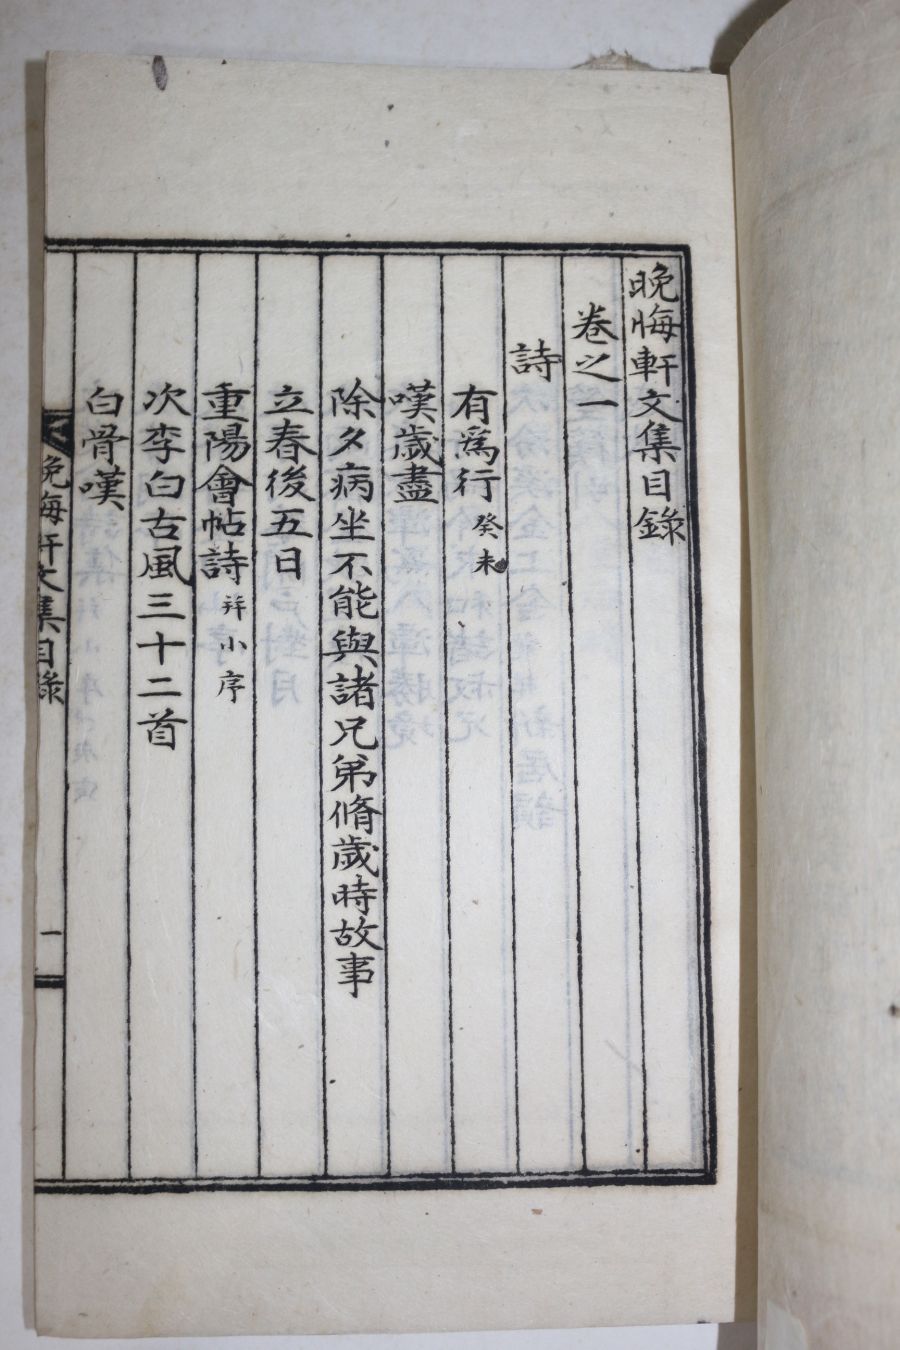 晩悔軒文集目錄
卷之一
詩
有爲行 癸未
嘆歲盡
除夕病坐不能與諸兄弟脩歲時故事
立春後五日
重陽會帖詩 幷小序
次李白古風三十二首
白骨嘆
晩悔軒文集目錄
一